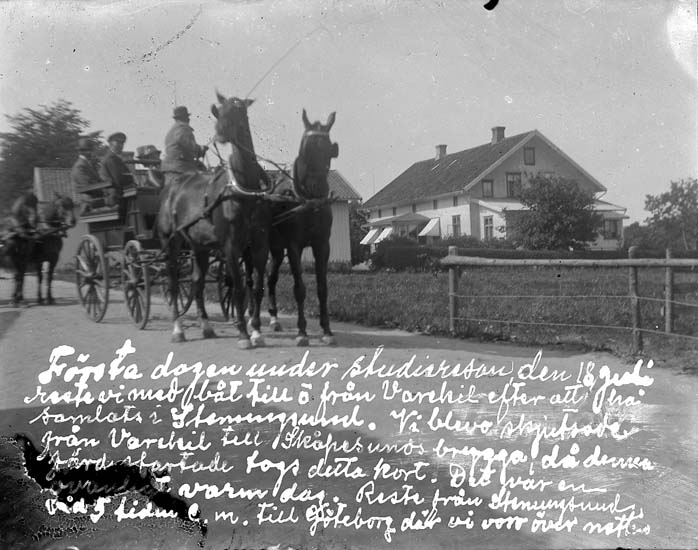 Första dagen under studieresan den 18 juli
reste vi med båt till ö från Varekil efter att ha
samlats i Stenungsund. Vi blevo skjutsade
från Varekil till Skåpesunds brygga, då denna
färd startade togs detta kort. Det var en
varm dag. Reste från Stenungsund
vid 5 tiden e. m. till Göteborg där vi voro över natten